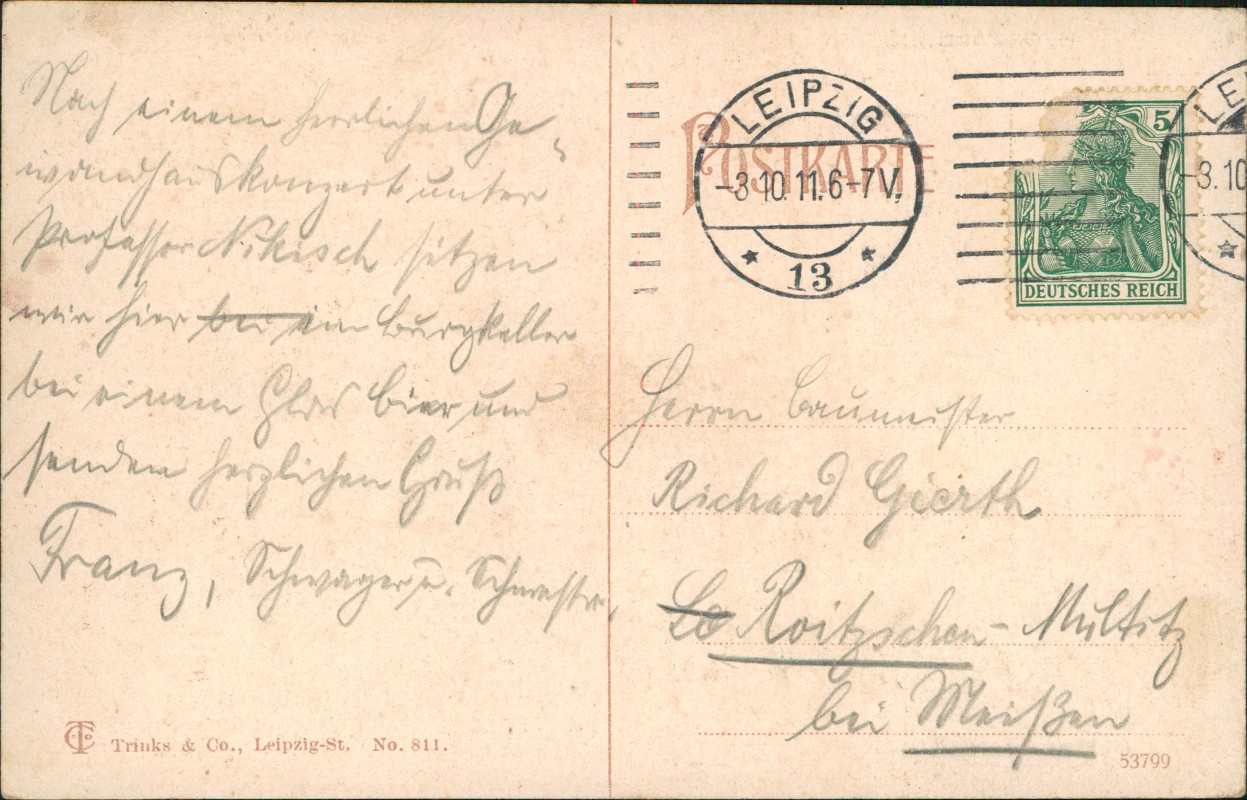 Nach einem herrlichen Ge-
wandhauskonzert unter
Professor Nikisch sitzen
wir hier bei im Burgkeller
bei einem Glas Bier und
senden herzlichen Gruß
Franz, Schwager u. Schwester,
Trinks & Co., Leipzig-St. No. 811.
POSTKARTE
LEIPZIG
-3.10.11.6-7V.
13
5
DEUTSCHES REICH
LEI
-3.10
Herrn Baumeister
Richard Gierth
Roitzschen-Multitz
bei Meißen
53799